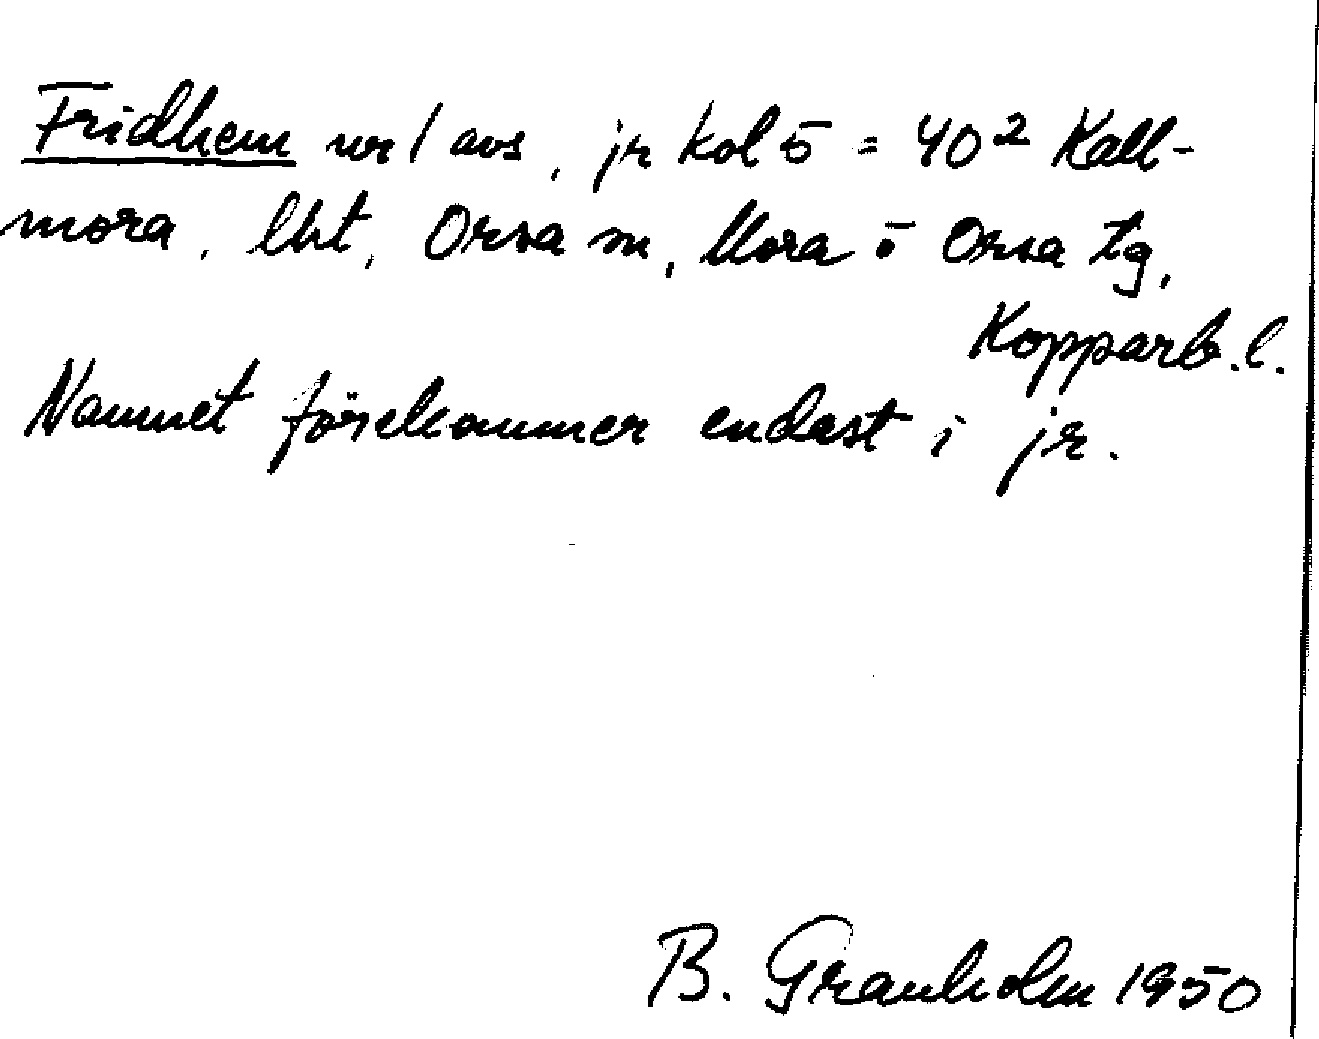 Fridhem nr 1 avs, jr kol 5 = 40² Kall-
mora, lht, Orsa sn, Mora o Orsa tg,
Kopparb. l.
Namnet förekommer endast i jr.
B. Granholm 1950